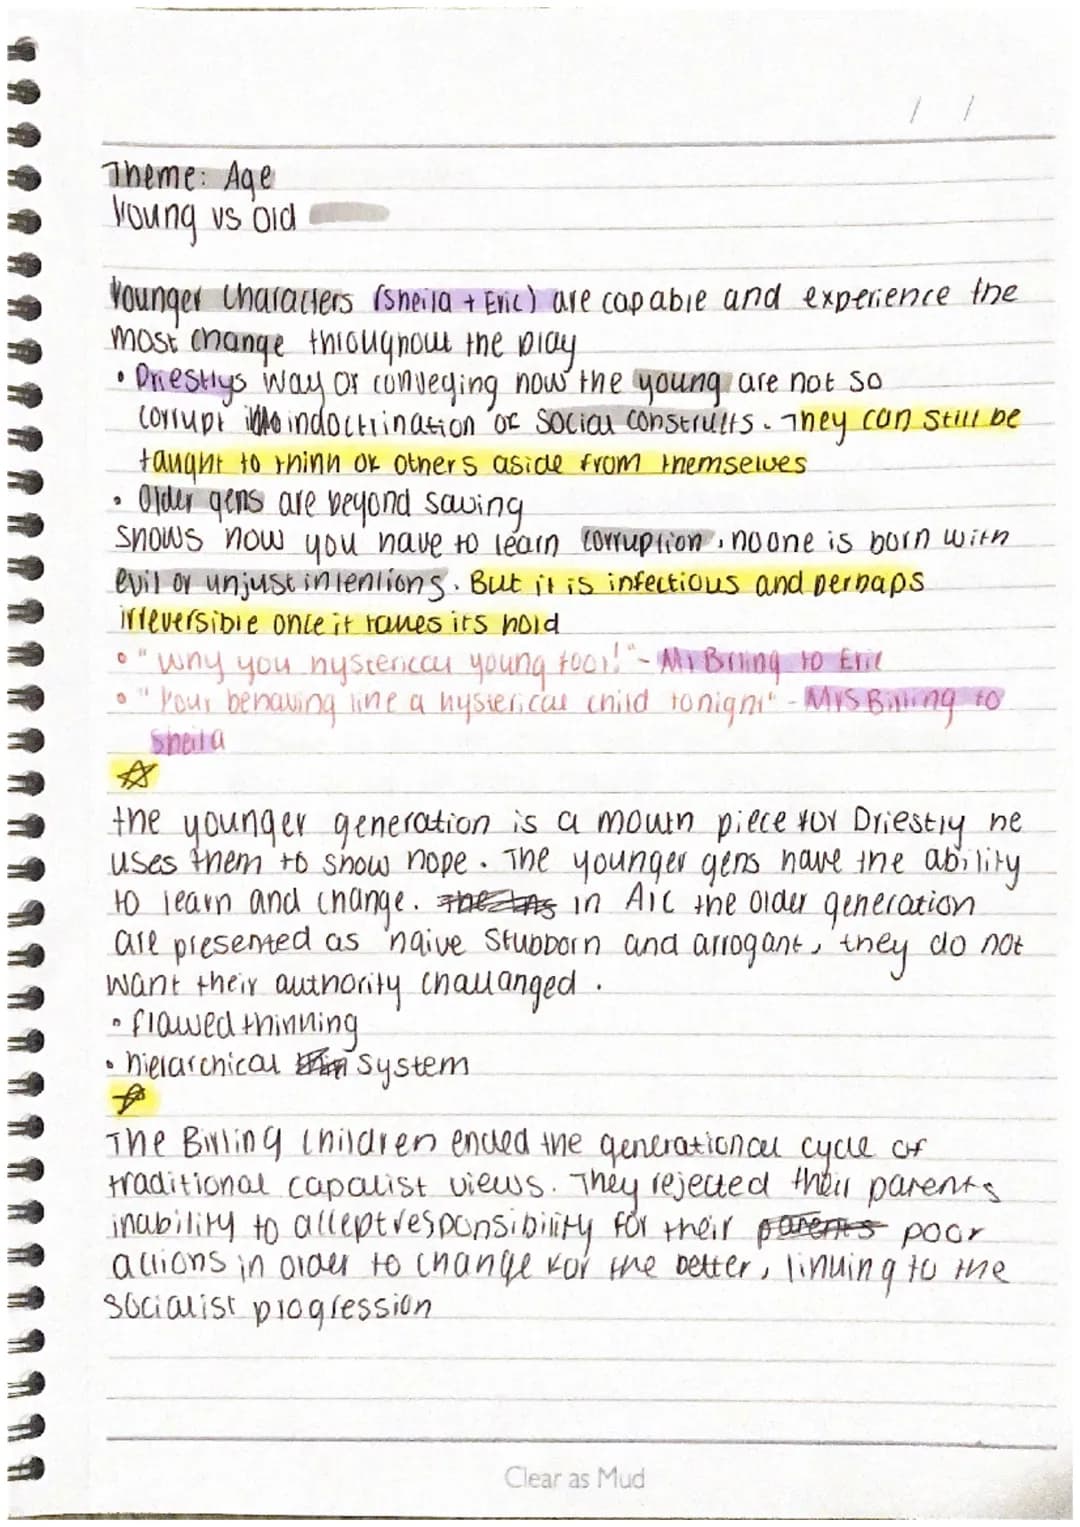 / /
Theme: Age
Young vs Old
Younger Characters (Sheila + Eric) are capable and experience the
most change throughout the play
• Priestlys way of conveying how the young are not so
corrupt indoctrination of social constructs. They can still be
taught to think of others aside from themselves
• Older gens are beyond saving
shows how you have to learn corruption, noone is born with
evil or unjust intentions. But it is infectious and perhaps
irreversible once it takes its hold
• "Why you hysterical young fool!" - Mr Birling to Eric
• "Your behaving like a hysterical child tonight" - Mrs Birling to
Sheila
the younger generation is a mouth piece for Priestly he
uses them to show hope. The younger gens have the ability
to learn and change. in AIC the older generation
are presented as naive stubborn and arrogant, they do not
want their authority challanged.
• flawed thinking
• hierarchical system
The Birling children ended the generational cycle of
traditional capalist views. They rejected their parents
inability to accept responsibility for their parents poor
actions in order to change for the better, linking to the
socialist progression
Clear as Mud